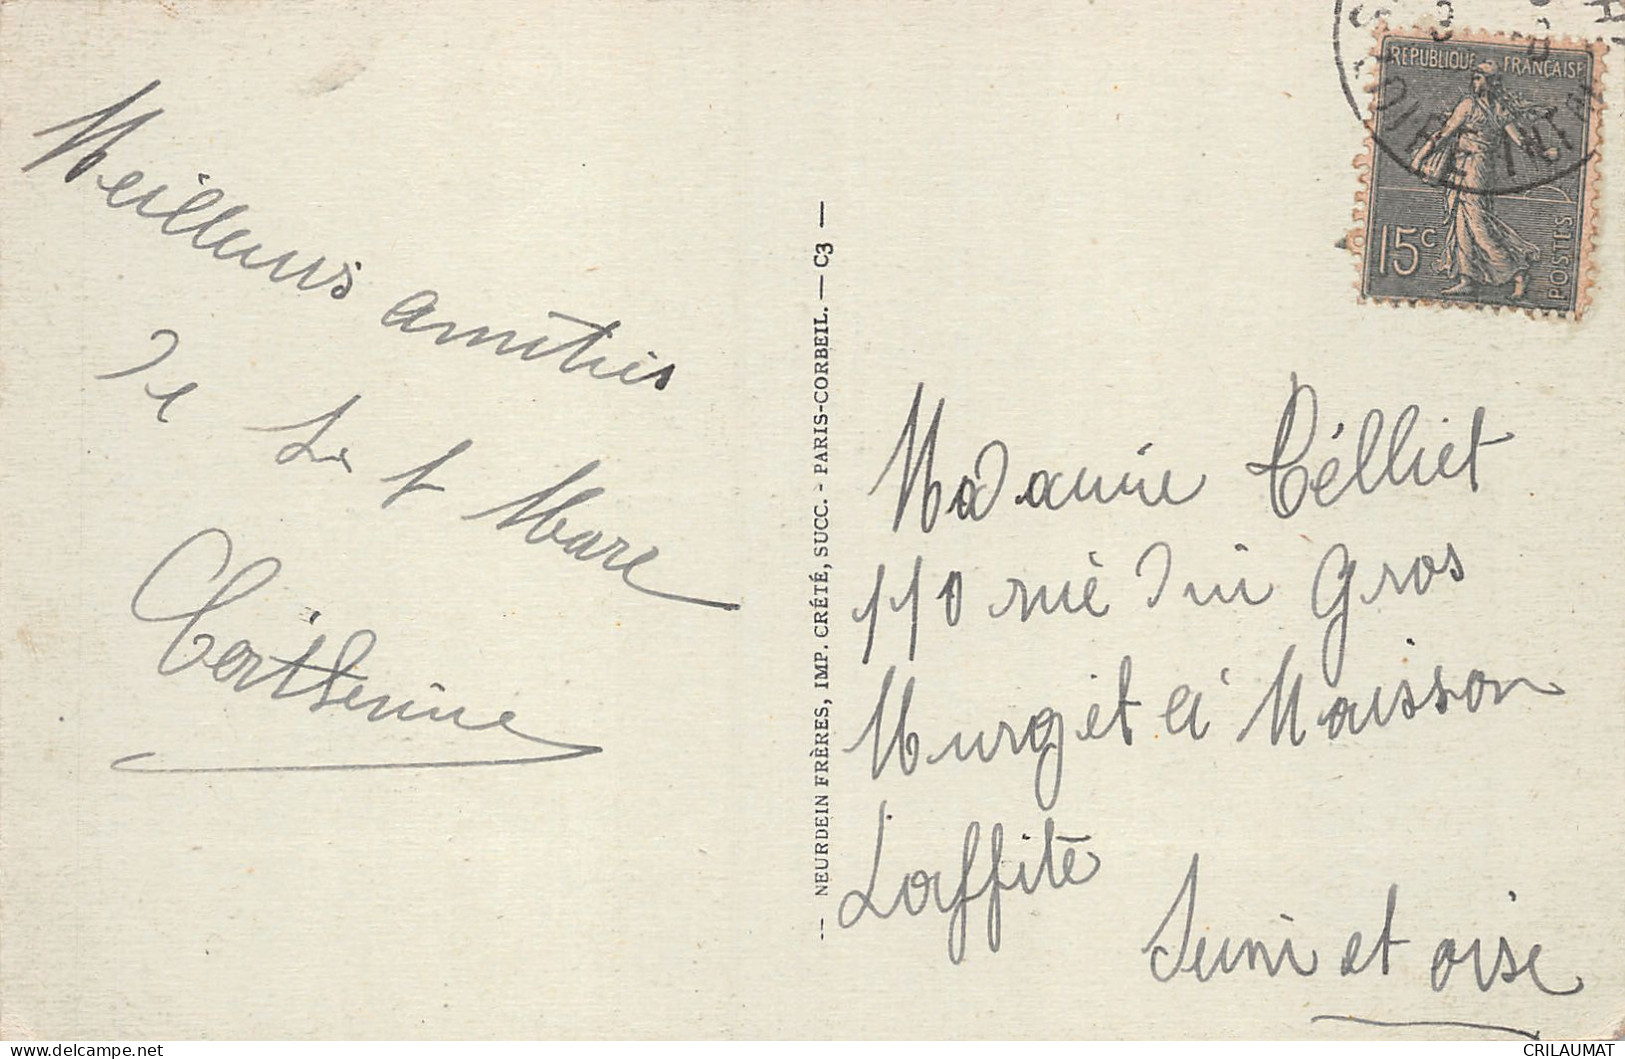 Meilleurs amitiés
de St Mare
Catherine
— NEURDEIN FRÈRES, IMP. CRÉTÉ, SUCC. - PARIS-CORBEIL. — C3 —
REPUBLIQUE FRANÇAISE
15c
POSTES
LOIRE INF
Madame Télliet
110 rue du Gros
Murget à Maisson
Laffite
Seine et oise
CRILAUMAT